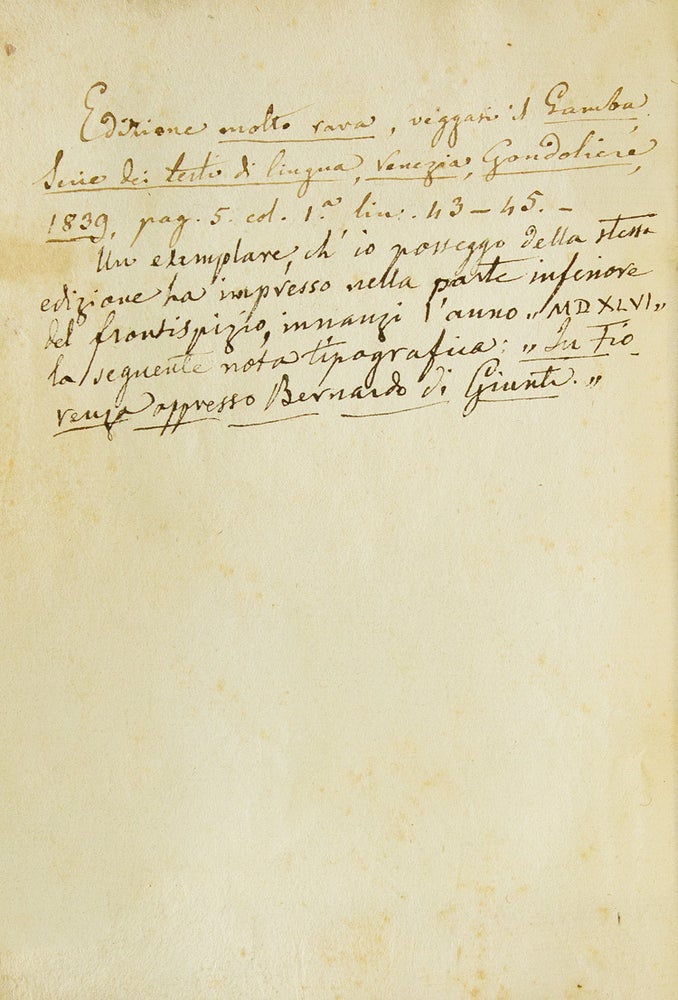 Edizione molto rara, veggasi il Gamba
Serie dei testi di lingua, Venezia, Gondoliere,
1839, pag. 5. col. 1.ª lin. 43–45.–
Un esemplare, ch' io posseggo della stessa
edizione ha impresso nella parte inferiore
del frontispizio, innanzi l'anno „MDXLVI„
la seguente nota tipografica: „In Fio
renza appresso Bernardo di Giunti.„